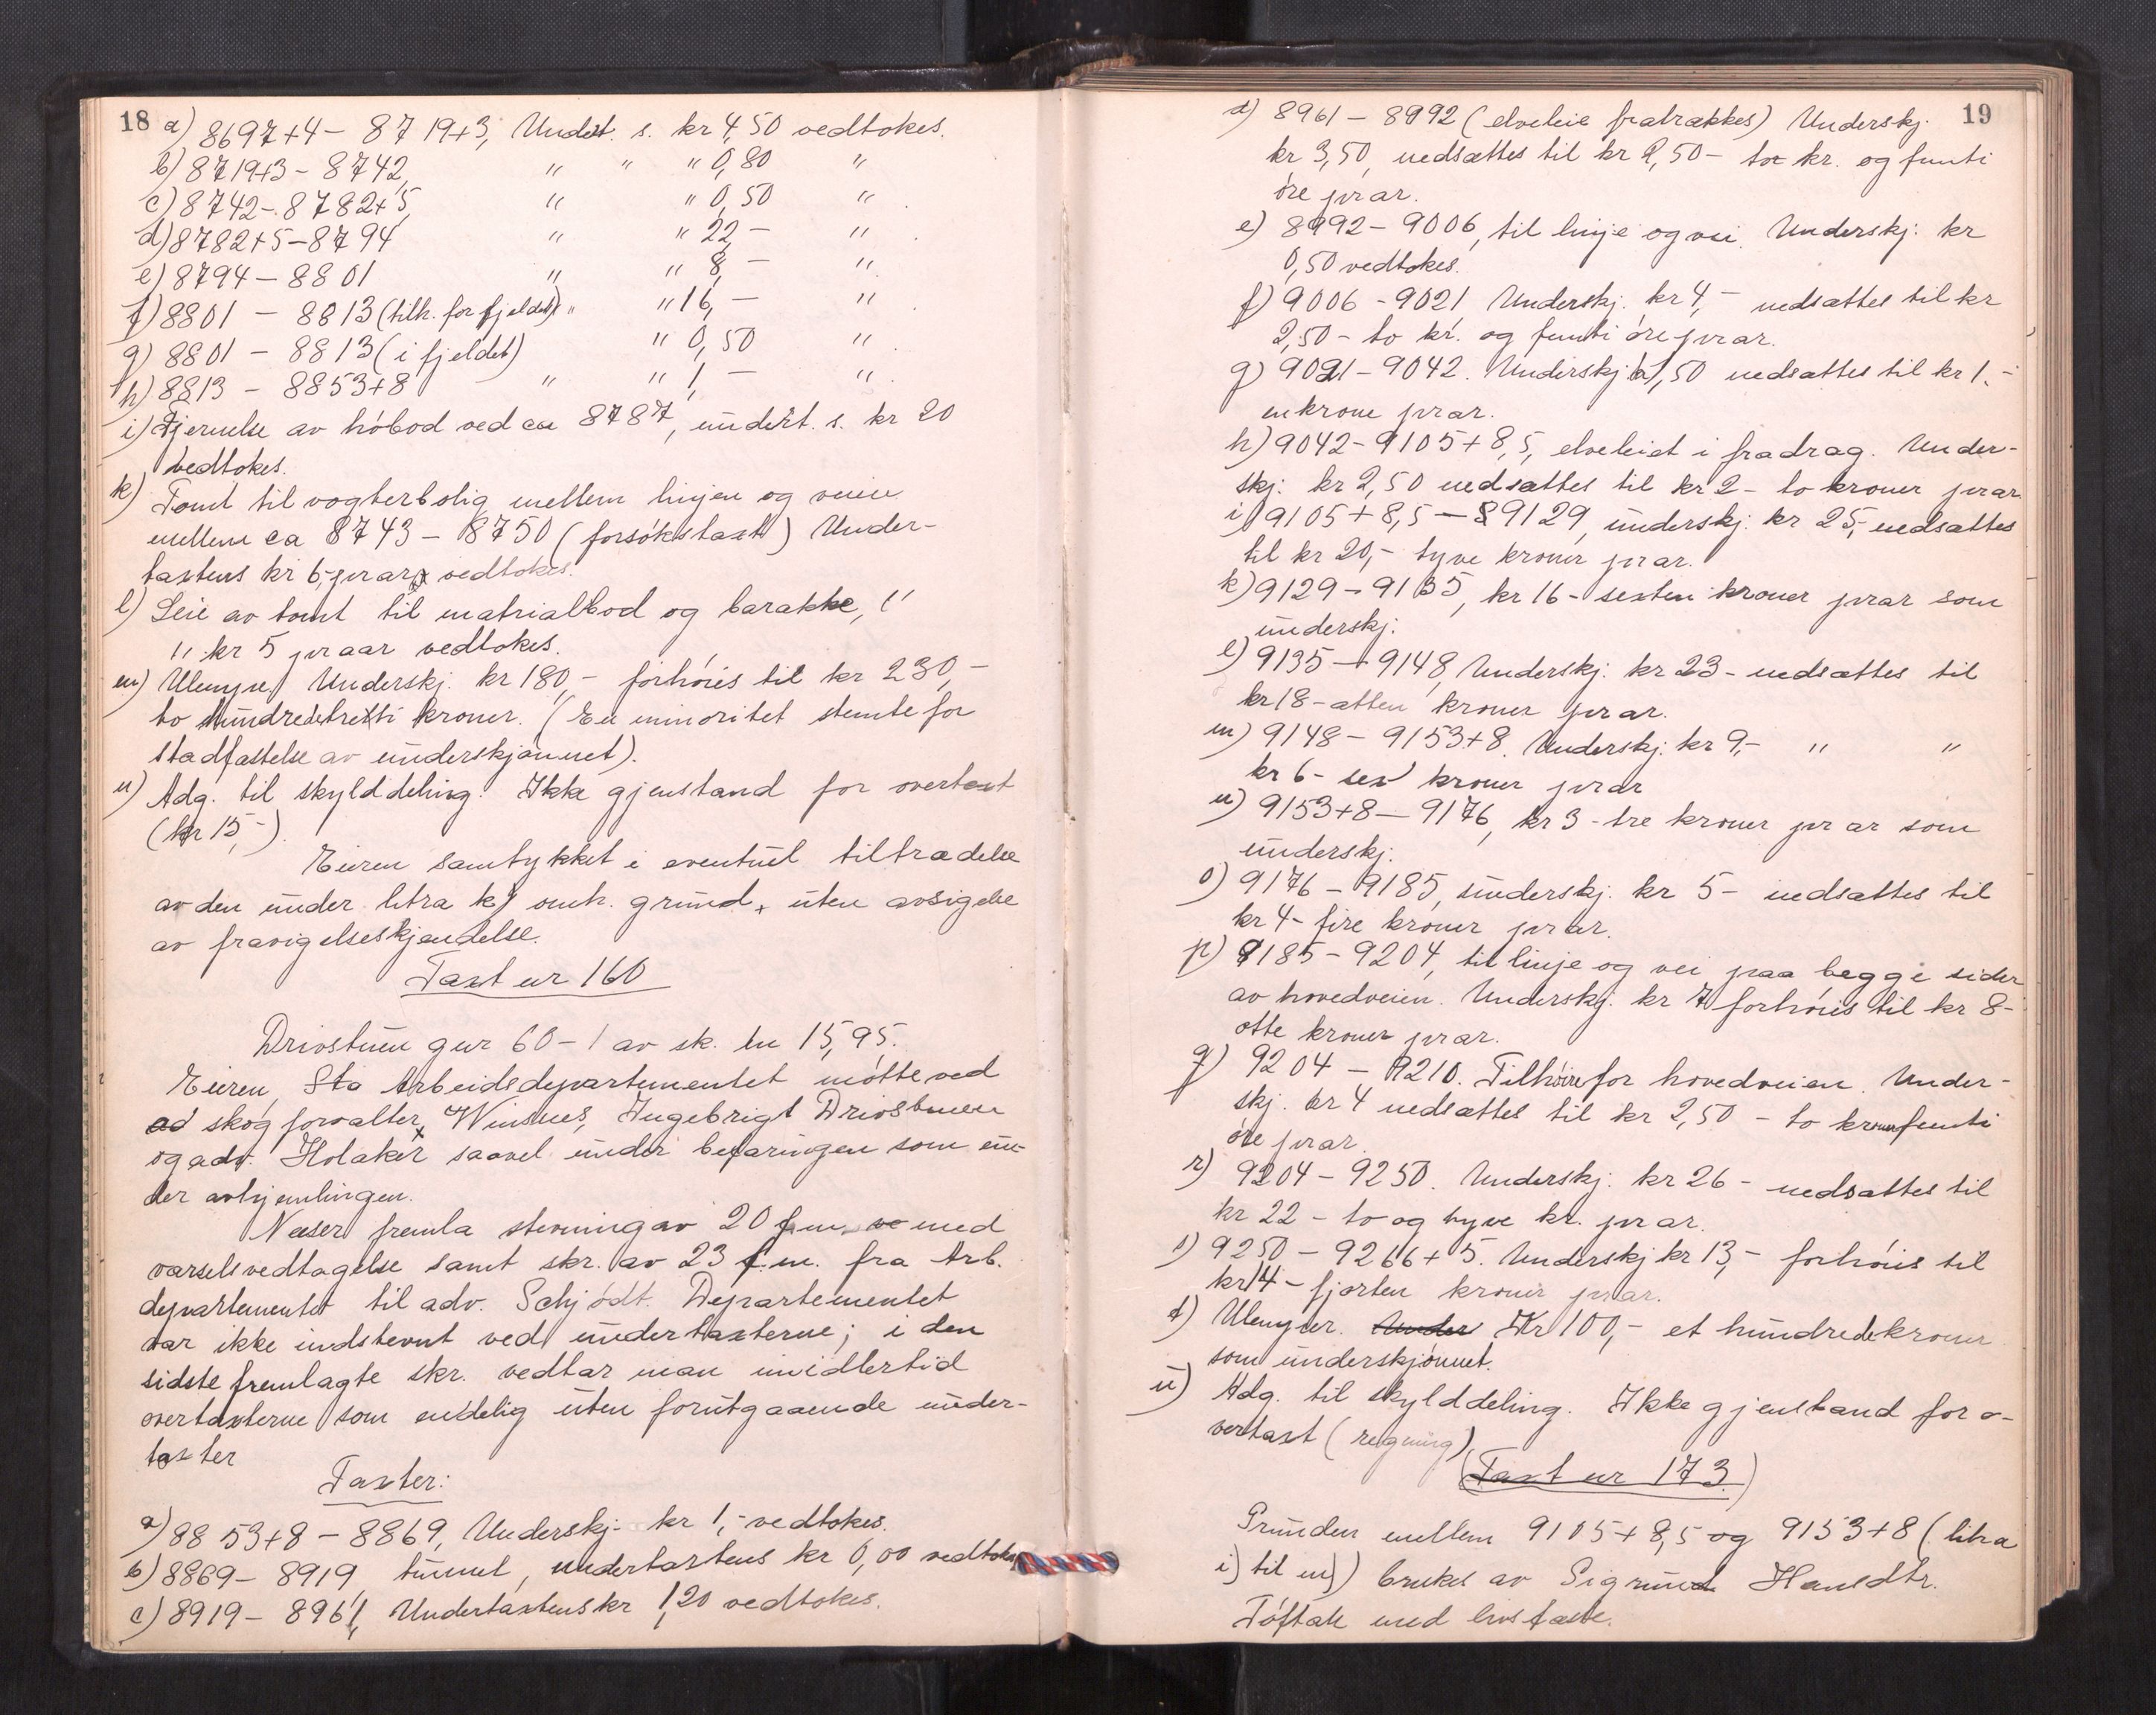 18 a) 8697+4 - 8719+3, Undert. s. kr 4,50 vedtokes.
b) 8719+3 - 8742, " " " 0,80 "
c) 8742 - 8782+5, " " 0,50 " .
d) 8782+5 - 8794 " " 22,- " .
e) 8794 - 8801 " " 8,- " .
f) 8801 - 8813 (tilh. for fjeldet) " " 16,- " .
g) 8801 - 8813 (i fjeldet) " 0,50 " .
h) 8813 - 8853+8 " " 1,- " .
i) Fjernelse av høbod ved ca 8787, undert. s. kr 20
vedtokes.
k) Tomt til vogterbolig mellem linjen og veien
mellem ca 8743 - 8750 (forsøkstaxt) Under-
taxtens kr 6,- pr ar vedtokes.
l) Leie av tomt til matrialbod og barakke, "
" kr 5 pr aar vedtokes.
m) Ulemper, Underskj. kr 180,- forhøies til kr 230,-
to hundredetretti kroner. (En minoritet stemte for
stadfæstelse av underskjønnet).
n) Adg. til skylddeling. Ikke gjenstand for overtaxt
(kr 15,-).
Eieren samtykket i eventuel tiltrædelse
av den under litra k) omh. grund, uten avsigelse
av fravigelseskjendelse.
Taxt nr 160
Drivstuen gnr 60-1 av sk. m 15,95.
Eieren, Sta Arbeidsdepartementet møtte ved
skogforvalter Winsnes, Ingebrigt Drivstuen
og adv. Holaker saavel under befaringen som un-
der avhjemlingen.
Næser fremla stevning av 20 f.m. med
varselsvedtagelse samt skr. av 23 f.m. fra Arb.
departementet til adv. Schjødt. Departementet
var ikke indstevnt ved undertaxterne; i den
sidste fremlagte skr. vedtar man imidlertid
overtaxterne som endelig uten forutgaaende under-
taxter
Taxter:
a) 8853+8 - 8869, Underskj. kr 1,- vedtokes.
b) 8869 - 8919, tunnel, undertaxtens kr 0,00 vedtokes
c) 8919 - 8961, Undertaxtens kr 1,20 vedtokes.
19
d) 8961 - 8992 (elveleie fratrækkes) Underskj.
kr 3,50, nedsættes til kr 2,50 - to kr. og femti
øre pr ar.
e) 8992 - 9006, til linje og vei. Underskj. kr
0,50 vedtokes.
f) 9006 - 9021, Underskj. kr 4,- nedsættes til kr
2,50 - to kr. og femti øre pr ar.
g) 9021 - 9042. Underskj. kr 1,50 nedsættes til kr 1,-
en krone pr ar.
h) 9042 - 9105+8,5, elveleiet i fradrag. Under-
skj. kr 2,50 nedsættes til kr 2 - to kroner pr ar.
i) 9105+8,5 - 9129, underskj. kr 25,- nedsættes
til kr 20,- tyve kroner pr ar.
k) 9129 - 9135, kr 16 - sexten kroner pr ar som
underskj.
l) 9135 - 9148, Underskj. kr 23 - nedsættes til
kr 18 - atten kroner pr ar.
m) 9148 - 9153+8. Underskj. kr 9,- " "
kr 6 - sex kroner pr ar
n) 9153+8 - 9176, kr 3 - tre kroner pr ar som
underskj.
o) 9176 - 9185, underskj. kr 5 - nedsættes til
kr 4 - fire kroner pr ar.
p) 9185 - 9204, til linje og vei paa begge sider
av hovedveien. Underskj. kr 7 forhøies til kr 8 -
otte kroner pr ar.
q) 9204 - 9210. Tilhøire for hovedveien. Under-
skj. kr 4 nedsættes til kr 2,50 - to kroner femti
øre pr ar.
r) 9204 - 9250. Underskj. kr 26 - nedsættes til
kr 22 - to og tyve kr. pr ar.
s) 9250 - 9266+5. Underskj kr 13,- forhøies til
kr 14 - fjorten kroner pr ar.
t) Ulemper. Under Kr 100,- et hundrede kroner
som underskjønnet.
u) Adg. til skylddeling. Ikke gjenstand for o-
vertaxt (regning)
(Taxt nr 173.)
Grunden mellem 9105+8,5 og 9153+8 (litra
i) til m)) brukes av Sigrund Hansdtr.
Tøftak med livsfæste.